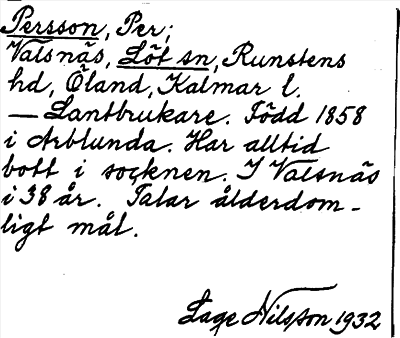 Persson, Per;
Valsnäs, Löt sn, Runstens
hd, Öland, Kalmar l.
— Lantbrukare. Född 1858
i Arblunda. Har alltid
bott i socknen. I Valsnäs
i 38 år. Talar ålderdom-
ligt mål.
Lage Nilsson 1932